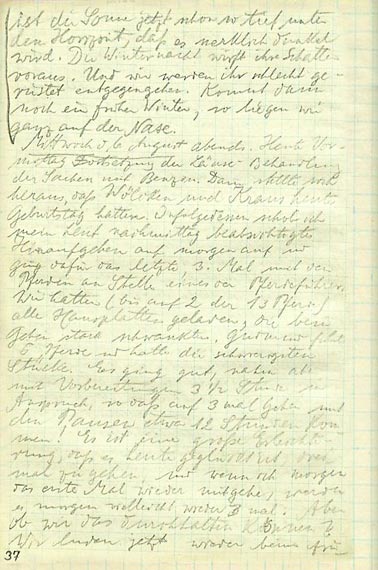 ist die Sonne jetzt schon so tief unter
den Horizont, daß es merklich dunkel
wird. Die Winternacht wirft ihre Schatten
voraus. Und wir werden ihr schlecht ge-
rüstet entgegengehen. Kommt dann
noch ein früher Winter, so liegen wir
ganz auf der Nase.
Mittwoch d. 6 August abends. Heute Vor-
mittag Fortsetzung der Läuse-Behandlung
der Sachen mit Benzin. Dann stellte sich
heraus, daß Wölcken und Kraus heute
Geburtstag hatten. Infolgedessen schob ich
mein heut nachmittag beabsichtigtes
Hinaufgehen auf morgen auf und
ging dafür das letzte, 3. Mal mit den
Pferden an Stelle eines der Pferdeführer.
Wir hatten (bis auf 2 der 13 Pferde)
alle Hausplatten geladen, die beim
Gehen stark schwankten. Gudmund
6 Pferde und hatte die schwierigsten
Stücke. Es ging gut, nahm aber
mit Vorbereitungen 3 1/2 Stunde in
Anspruch, so daß auf 3 mal Gehen mit
den Pausen etwa 12 Stunden kom-
men! Es ist eine große Erleichte-
rung, daß es heute geglückt ist, drei
mal zu gehen, und wenn ich morgen
das erste Mal wieder mitgehe, werden
es morgen vielleicht wieder 3 mal. Aber
ob wir das durchhalten können?
Wir luden jetzt wieder beim
37